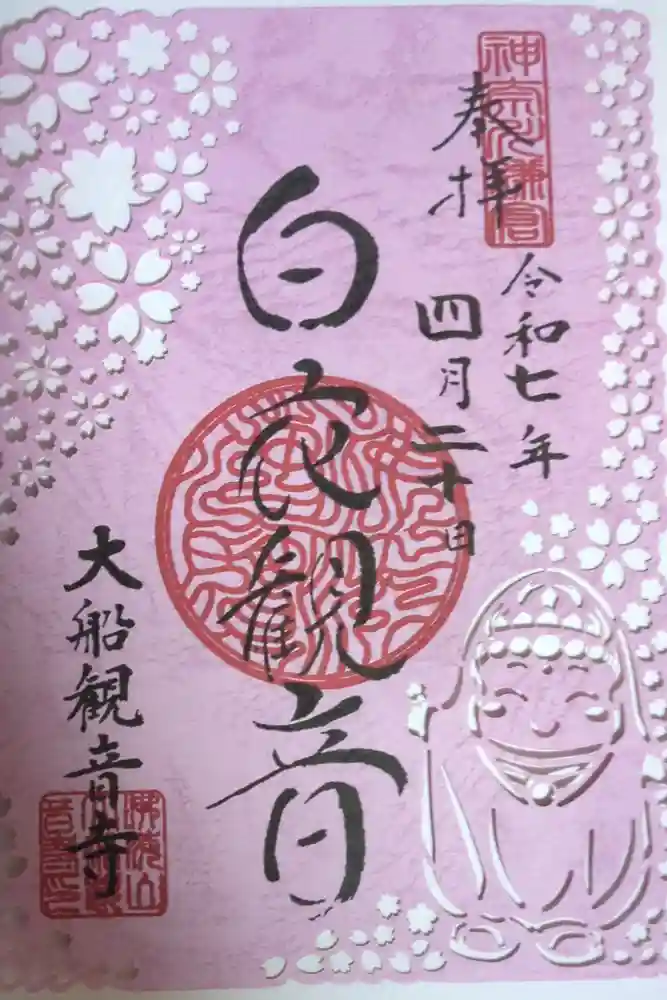 奉拝
令和七年
四月二十日
白衣観音
大船観音寺